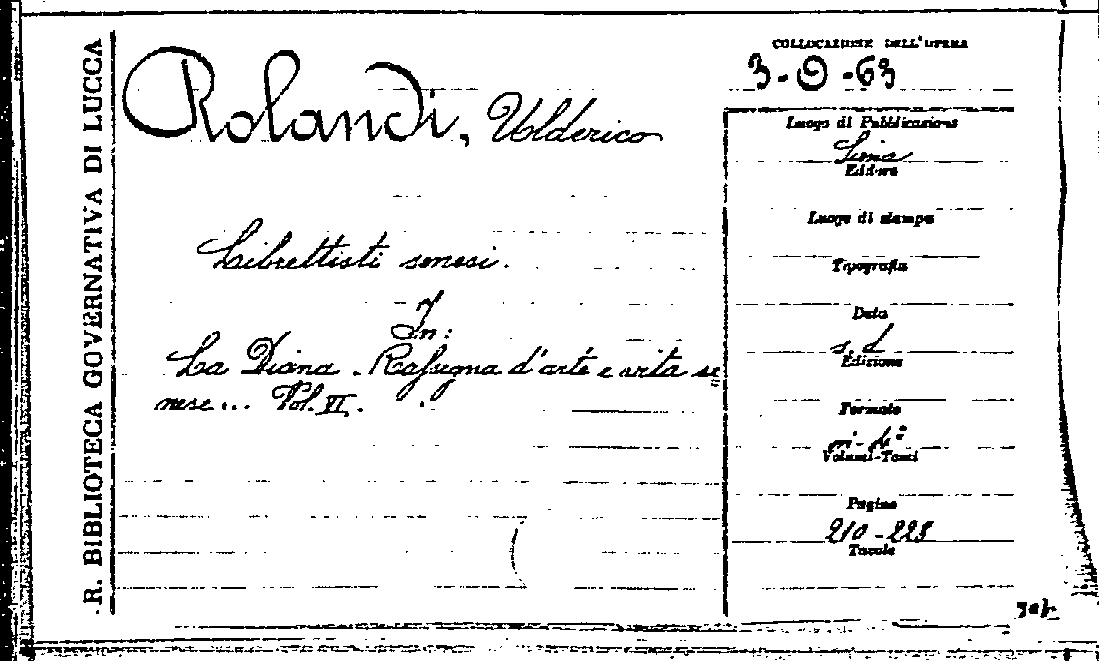 R. BIBLIOTECA GOVERNATIVA DI LUCCA
Rolandi, Ulderico
Librettisti senesi.
In:
La Diana. Rassegna d'arte e vita se
nese... Vol. VI.
COLLOCAZIONE DELL'OPERA
3-O-63
Luogo di Pubblicazione
Siena
Editore
Luogo di stampa
Tipografia
Data
s. d.
Edizione
Formato
in-4°
Volumi-Tomi
Pagine
210-228
Tavole